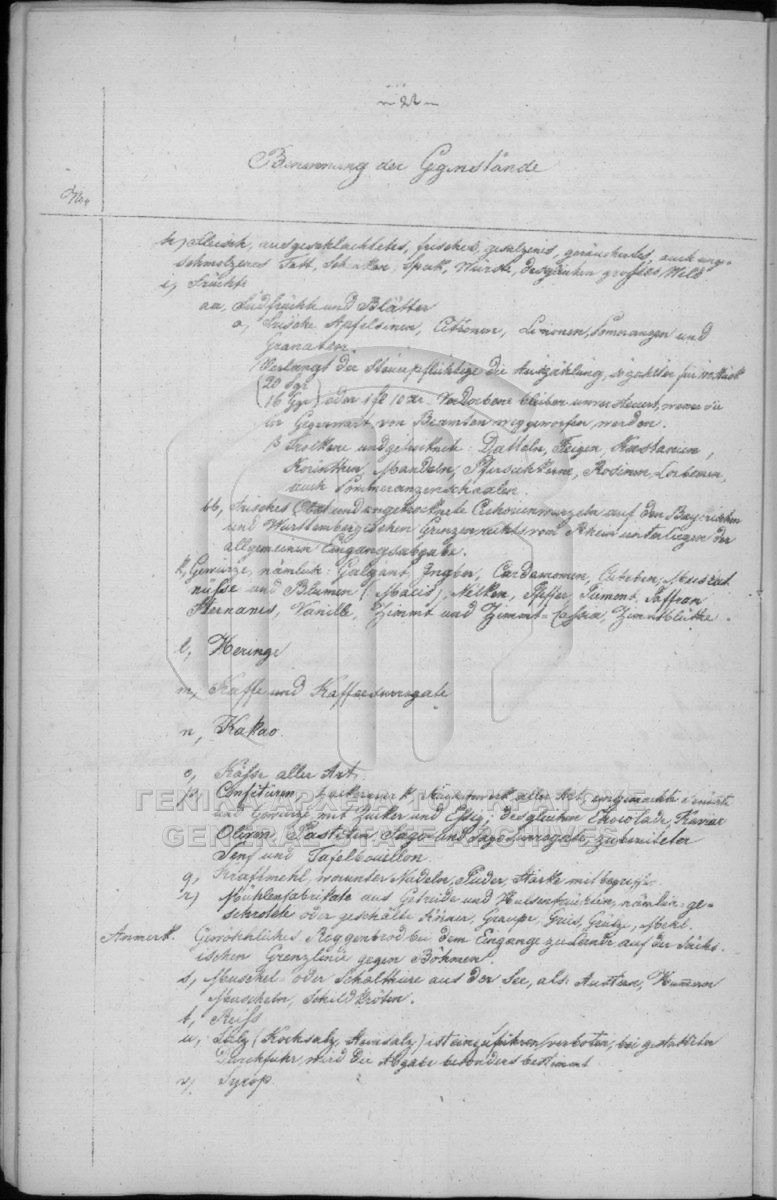 - 22 -
Benennung der Gegenstände
No.
h, Fleisch, ausgeschlachtetes, frisches, gesalzenes, geräuchertes, auch unge-
schmolzenes Fett, Schinken, Speck, Würste, desgleichen grosses Wild
i, Früchte
aa, Südfrüchte und Blätter
a, Frische Apfelsinen, Citronen, Limonen, Pomeranzen und
Granaten.
Verlangt der Steuerpflichtige die Auszählung, so zahlt er für 100 Stück
(20 Sgr
16 Ggr) oder 1 fl 10 xr. Verdorbene bleiben unversteuert, wenn sie
in Gegenwart von Beamten weggeworfen werden.
β Trockene und getrocknete: Datteln, Feigen, Kastanien,
Korinthen, Mandeln, Pfirsichkerne, Rosinen, Lorbeeren,
auch Pommeranzenschaalen.
bb, Frisches Obst und ungetrocknete Cichorienwurzeln auf den Bayerischen
und Württembergischen Grenzen rechts vom Rhein unterliegen der
allgemeinen Eingangsabgabe.
k, Gewürze, nämlich: Galgant, Ingber, Cardamomen, Cubeben, Muskat
nüsse und Blumen (Macis), Nelken, Pfeffer, Piment, Saffran
Sternanis, Vanille, Zimmt und Zimmt-Cassia, Zimmtblüthe.
l, Heringe
m, Kaffe und Kaffeesurrogate
n, Kakao.
o, Käse aller Art.
p, Confitüren, Zuckerwerk, Kuchenwerk aller Art, eingemachte Früchte
und Gewürze mit Zucker und Essig; desgleichen Chocolade, Kaviar
Oliven, Pasteten Sago und Sagosurrogate, zubereiteter
Senf und Tafelbouillon.
q, Kraftmehl, worunter Nudeln, Puder, Stärke mitbegriffen.
r, Mühlenfabrikate aus Getreide und Hülsenfrüchten, nämlich: ge-
schrotete oder geschälte Körner, Graupe, Gries, Grütze, Mehl.
Anmerk. Gewöhnliches Roggenbrod bei dem Eingange zu Lande auf der Sächs-
ischen Grenzlinie gegen Böhmen.
s, Muschel- oder Schalthiere aus der See, als: Austern, Hummern
Muscheln, Schildkröten.
t, Reis
u, Salz (Kochsalz, Steinsalz) ist einzuführen verboten, bei gestatteter
Durchfuhr, wird die Abgabe besonders bestimmt.
v, Syrop.
ΓΕΝΙΚΑ ΑΡΧΕΙΑ ΤΟΥ ΚΡΑΤΟΥΣ
GENERAL STATE ARCHIVES